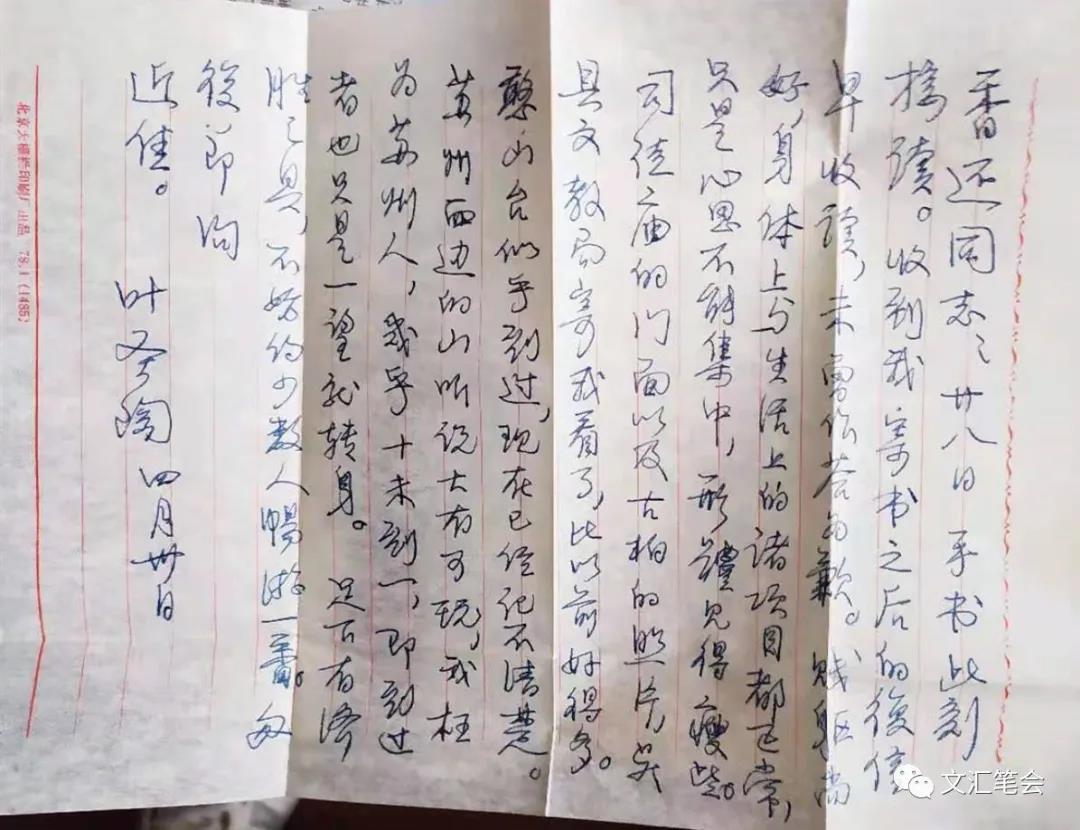 香还同志：廿八日手书此刻
接读。收到我寄书之后的復信
早收读，未曾作答为歉。贱躯尚
好，身体上与生活上的诸项目都正常，
只是心思不能集中，形體见得瘦些。
司徒庙的门面以及古柏的照片，吴
县文教局寄我看了，比以前好得多。
憨山台似乎到过，现在已经记不清楚。
苏州西边的山听说大有可玩，我枉
为苏州人，幾乎十未到一，即到过
者也只是一望就转身。足下有济
胜之具，不妨约少数人暢游一番。匆
復即询
近佳。
叶圣陶 四月卅日
北京大栅栏印刷厂出品 78.1 (1485)
文汇笔会